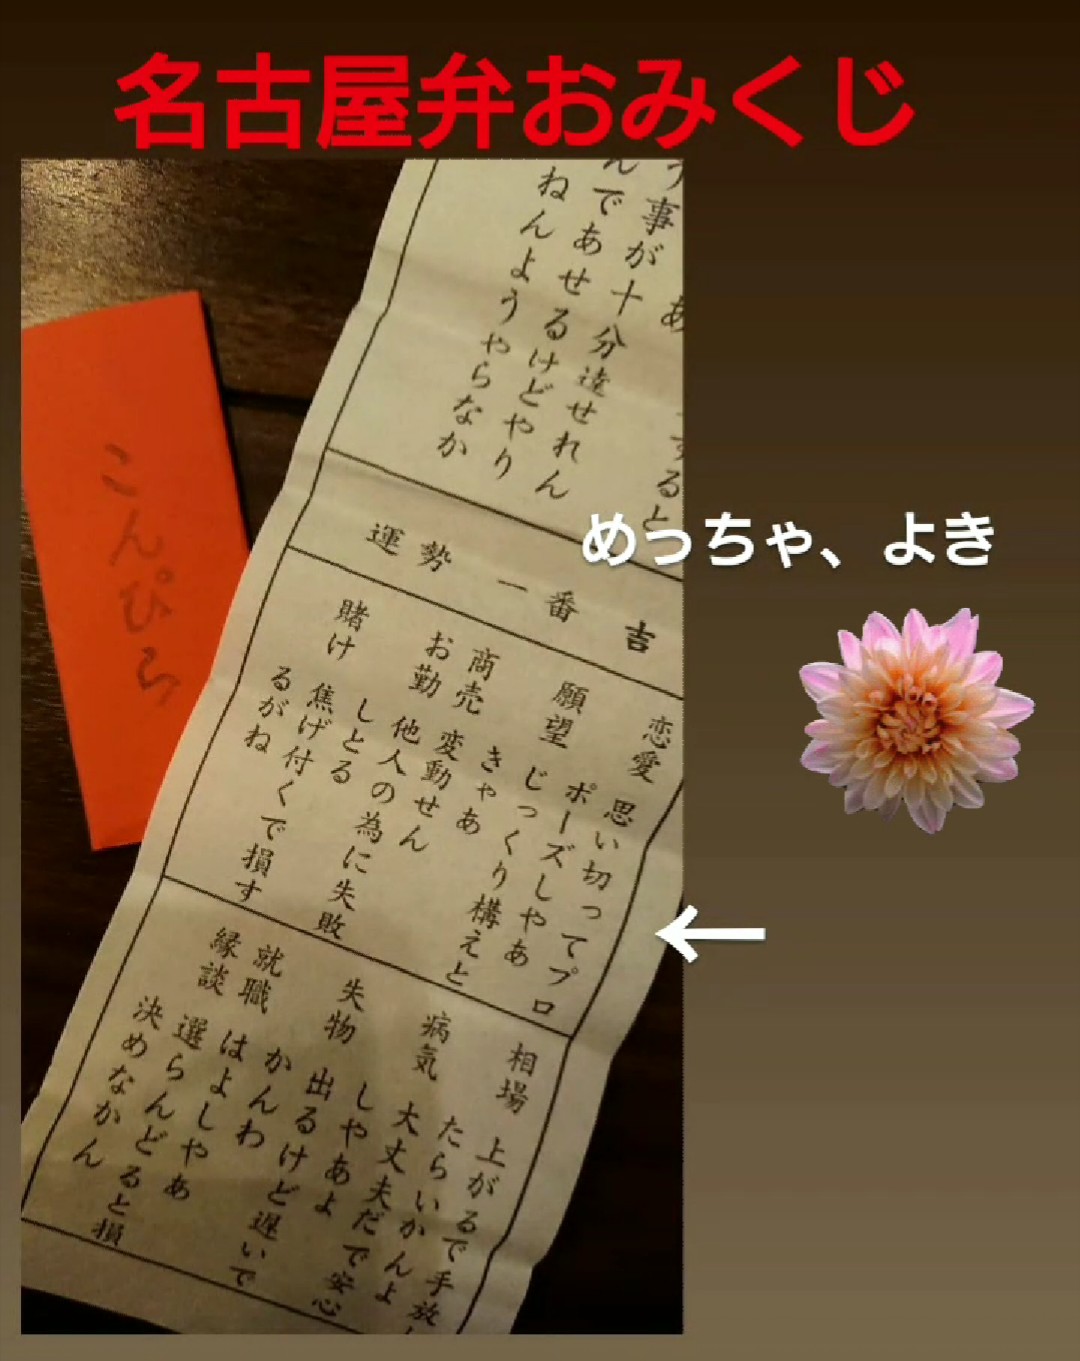 名古屋弁おみくじ
すると
う事が十分達せれん
んであせるけどやり
ねんようやらなか
運勢 一番 吉
恋愛 思い切ってプロ
ポーズしやあ
願望 じっくり構えと
きゃあ
商売 変動せん
お勤 他人の為に失敗
しとる
賭け 焦げ付くで損す
るがね
相場 上がるで手放し
たらいかんよ
病気 大丈夫だで安心
しやあよ
失物 出るけど遅いで
かんわ
就職 はよしやあ
縁談 選らんどると損
決めなかん
こんぴら
めっちゃ、よき
←